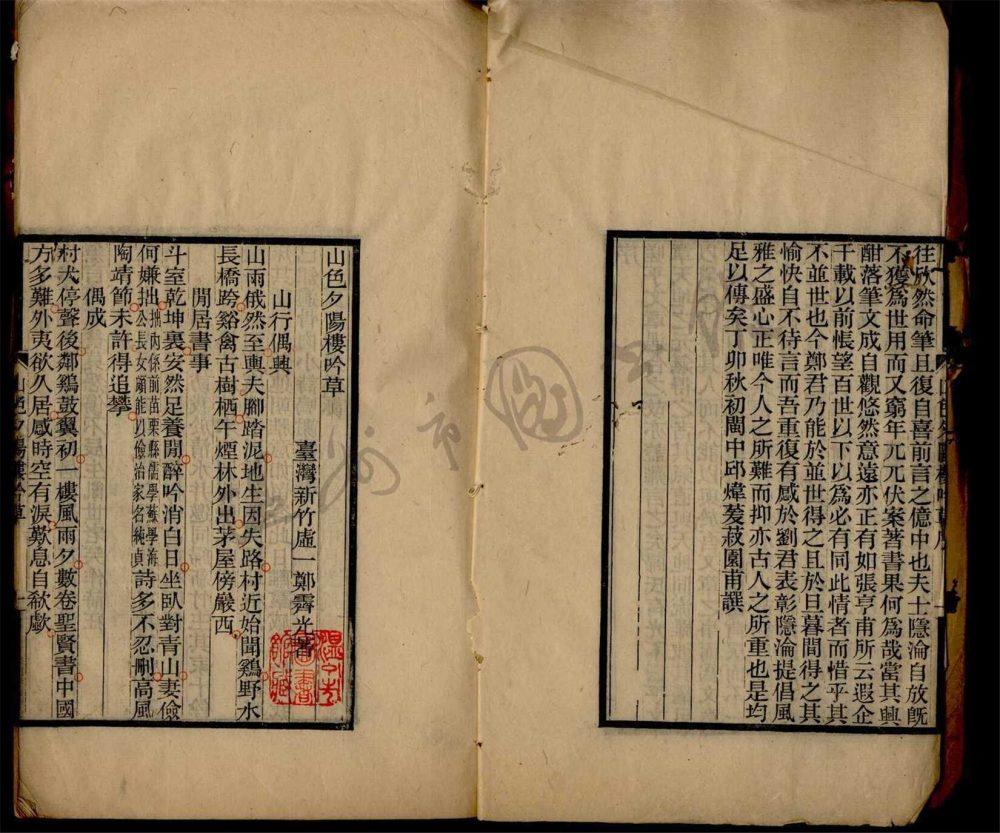 往欣然命筆且復自喜前言之億中也夫士隱淪自放旣
不獲爲世用而又窮年兀兀伏案著書果何爲哉當其興
酣落筆文成自觀悠然意遠亦正有如張亨甫所云遐企
千載以前悵望百世以下以爲必有同此情者而惜乎其
不並世也今鄭君乃能於並世得之且於旦暮間得之其
愉快自不待言而吾重復有感於劉君表彰隱淪提倡風
雅之盛心正唯今人之所難而抑亦古人之所重也是均
足以傳矣丁卯秋初閩中邱煒萲菽園甫譔
山色夕陽樓吟草
臺灣新竹虛一鄭霽光著
山行偶興
山雨俄然至輿夫腳踏泥地生因失路村近始聞鷄野水
長橋跨谿禽古樹栖午煙林外出茅屋傍巖西
閒居書事
斗室乾坤裏安然足養閒醉吟消白日坐臥對青山妻儉
何嫌拙拙內係前苗栗縣儒學蘇學海公長女頗能以儉治家名純貞詩多不忍刪高風
陶靖節未許得追攀
偶成
村犬停聲後鄰鷄鼓翼初一樓風雨夕數卷聖賢書中國
方多難外夷欲久居感時空有淚歎息自欷歔
山色夕陽樓吟草